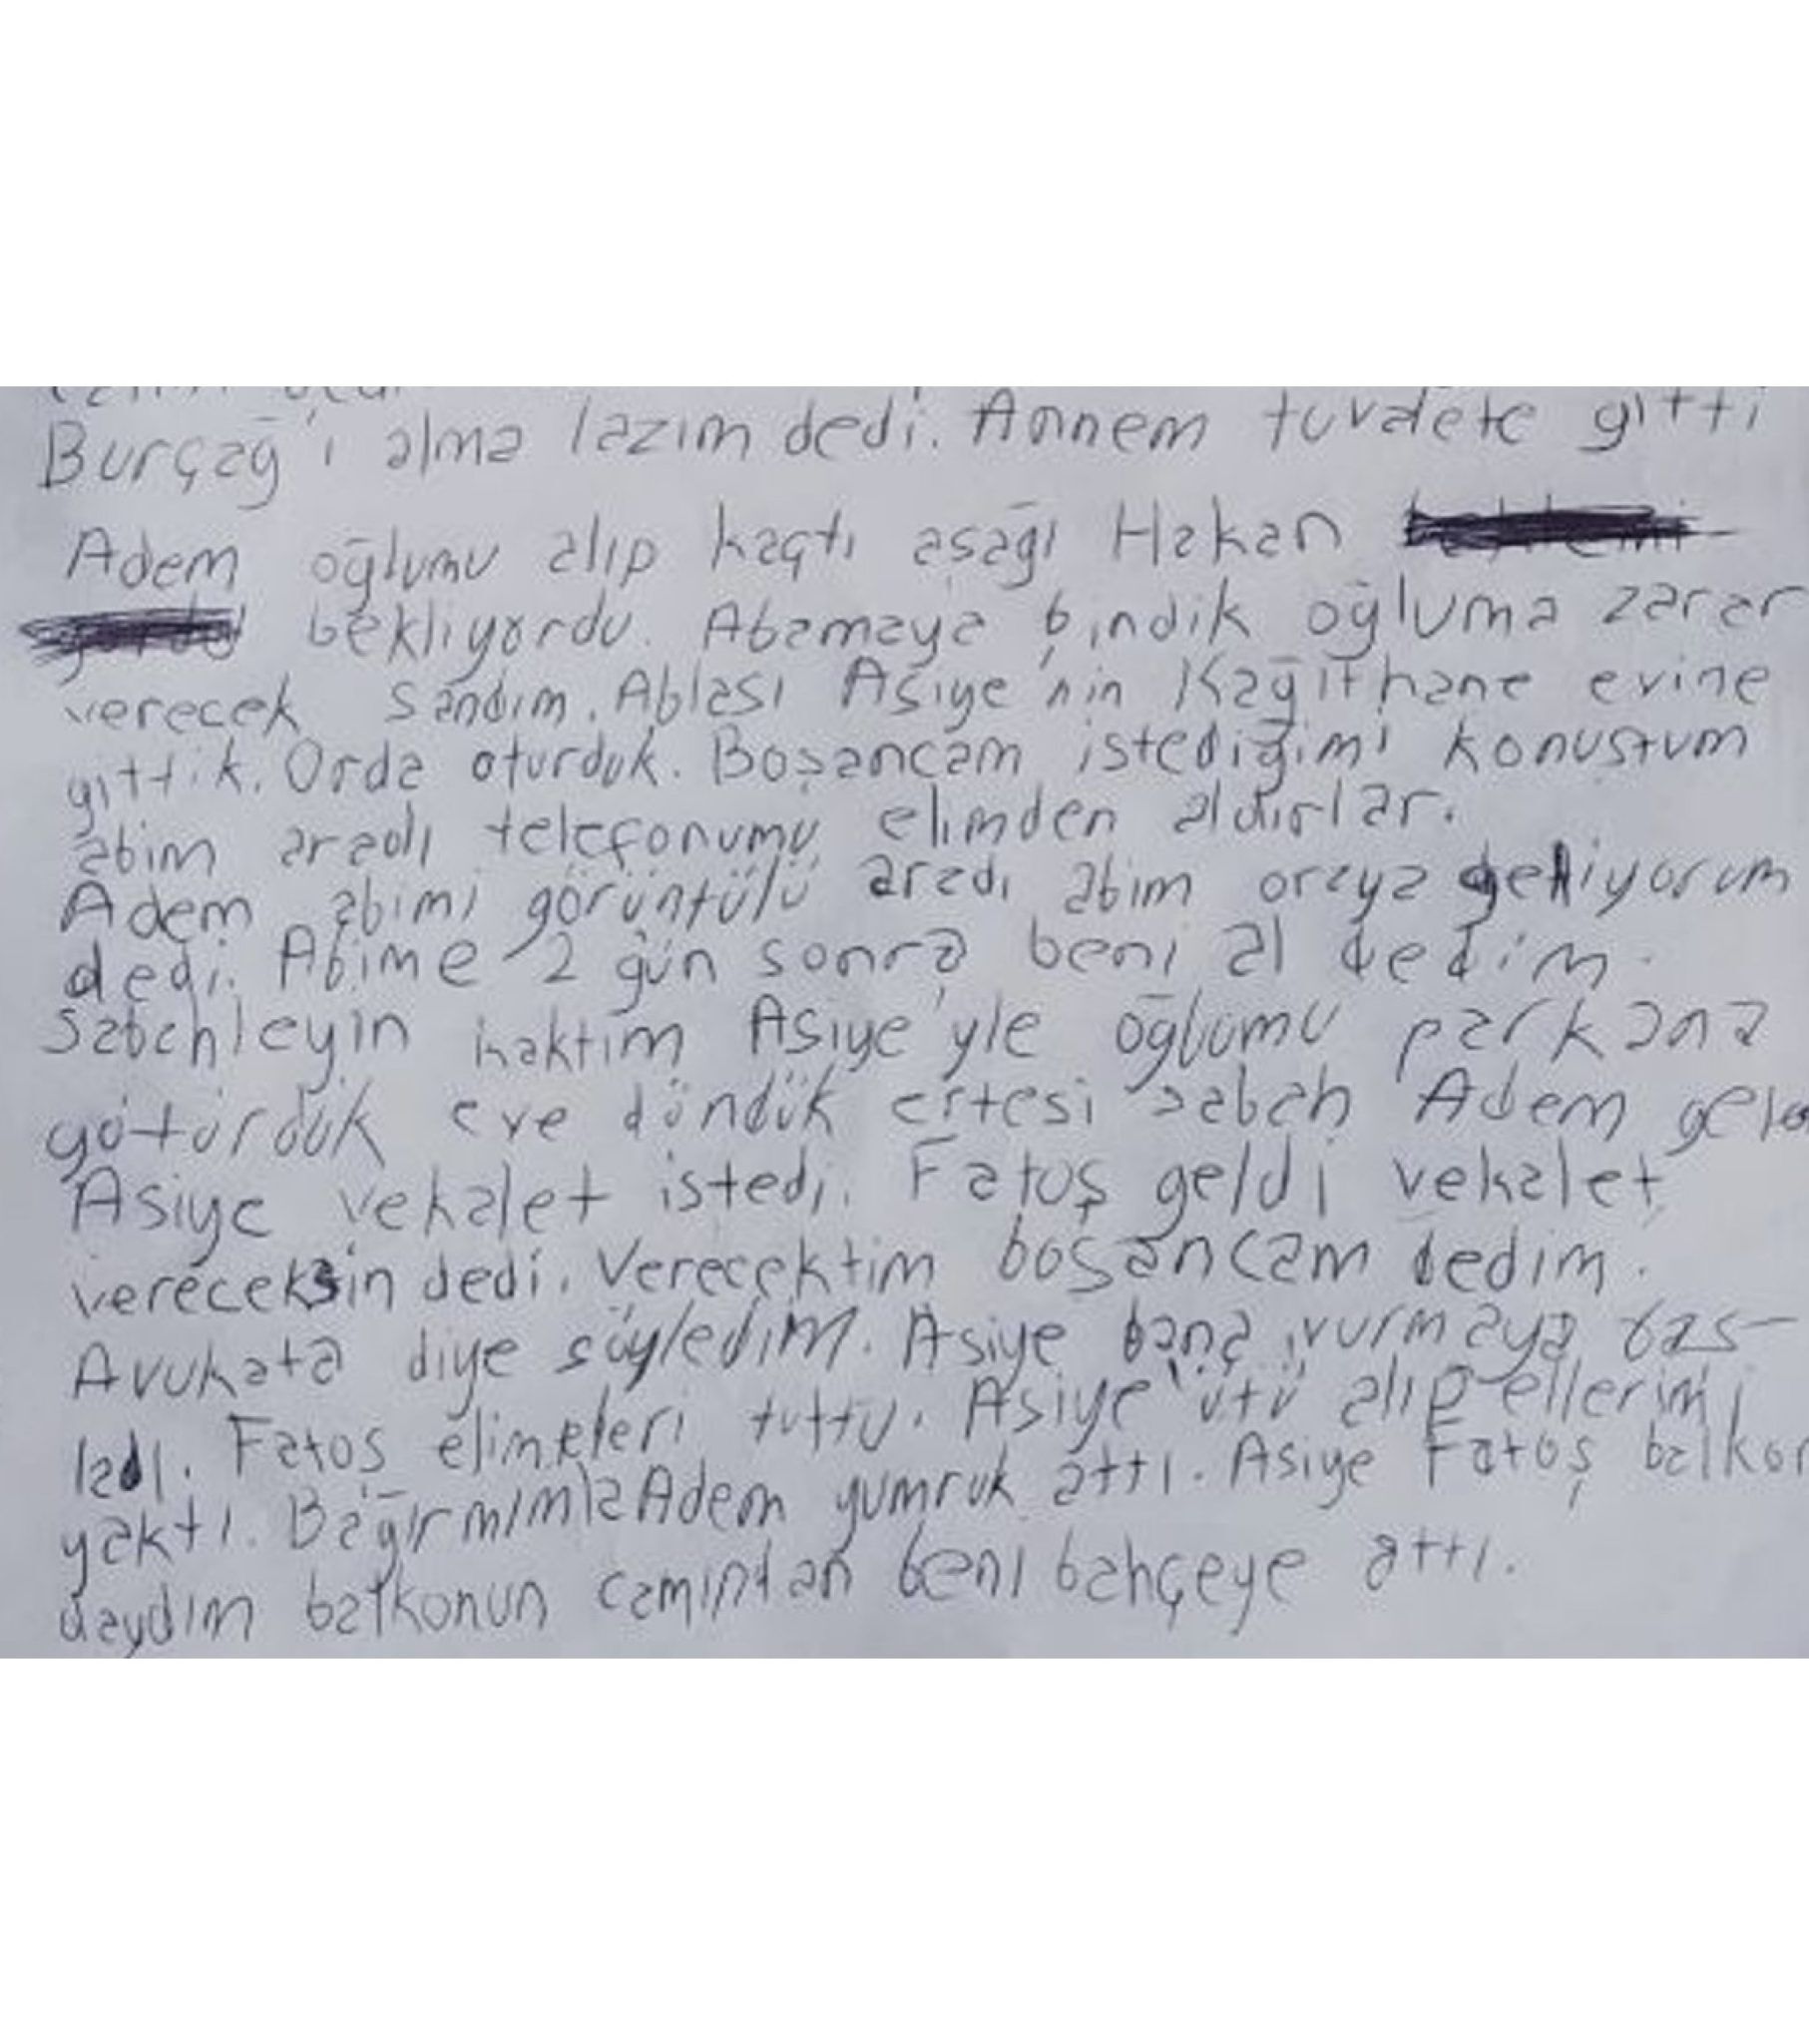 Burçağ'ı alma lazım dedi. Annem tuvalete gitti
Adem oğlumu alıp kaçtı aşağı Hakan
bekliyordu. Abamaya bindik oğluma zarar
verecek sandım. Ablası Asiye'nin Kağıthane evine
gittik. Orda oturduk. Boşancam istediğimi konuştum
abim aradı telefonumu elimden aldırlar.
Adem abimi görüntülü aradı abim oraya geliyorum
dedi. Abime 2 gün sonra beni al dedim.
Sabahleyin kaktım Asiye'yle oğlumu parkana
götürdük eve döndük ertesi sabah Adem
Asiye vekalet istedi. Fatoş geldi vekalet
vereceksin dedi. Verecektim boşancam dedim.
Avukata diye söyledim. Asiye bana vurmaya baş-
ladı. Fatoş elimeleri tuttu. Asiye ütü alıp ellerimi
yaktı. Bağırmımla Adem yumruk attı. Asiye Fatoş balkon
daydım balkonun camından beni bahçeye attı.